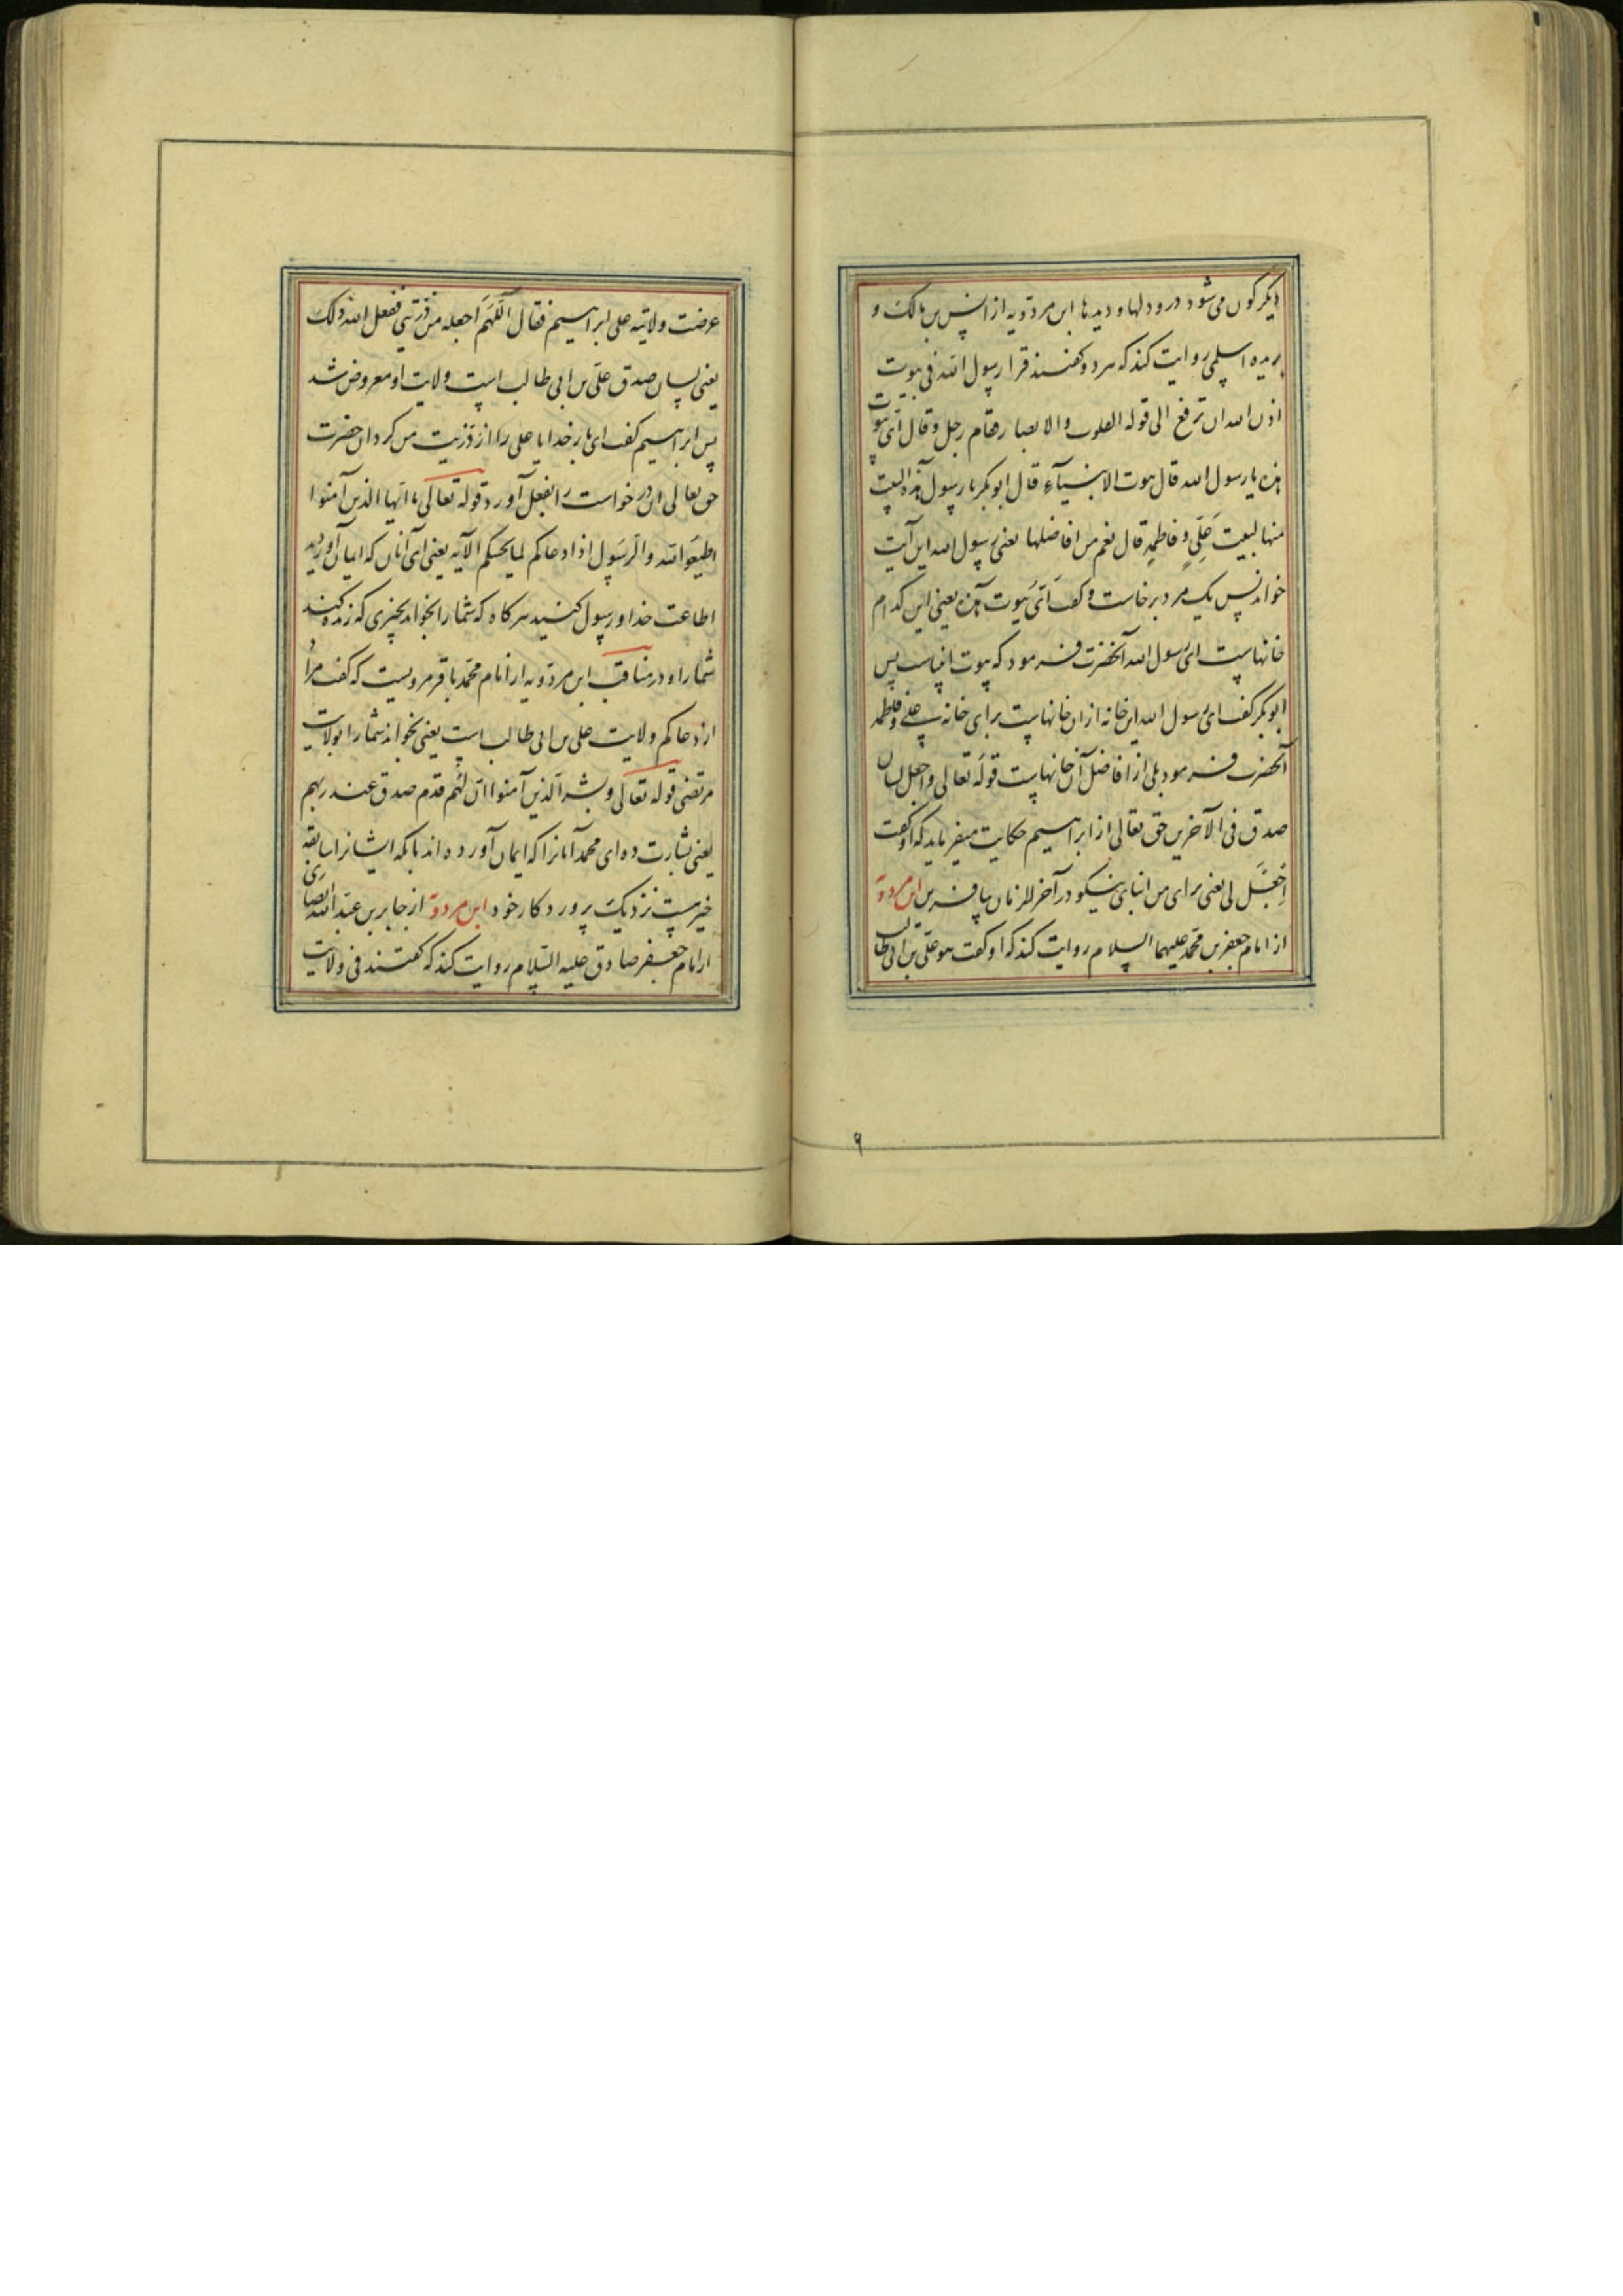 دیکرکون می شود درو دلها و دیدها ابن مردویه از انس بن مالک و
بریده اسلمی روایت کند که هر دو کفتند قرا رسول الله فی بیوت
اذن الله ان ترفع الی قوله القلوب والابصار فقام رجل و قال ای بیوت
هذه یا رسول الله قال بیوت الانبیآء قال ابوبکر یا رسول الله هذه البیت
منها لبیت علی و فاطمه قال نعم من افاضلها یعنی رسول الله این آیت
خواند پس یک مرد برخاست و کفت ای بیوت هذه یعنی این کدام
خانهاست ای رسول الله آنحضرت فرمود که بیوت انبیاست پس
ابوبکر کفت ای رسول الله این خانه ازان خانهاست برای خانه علی و فاطمه
آنحضرت فرمود بلی از افاضل آن خانهاست قوله تعالی واجعل لی لسان
صدق فی الآخرین حق تعالی از ابراهیم حکایت میفرماید که او کفت
اجعل لی یعنی برای من نیکو در آخر الزمان بیافرین ابن مردویه
از امام جعفر بن محمد علیهما السلام روایت کند که او کفت هو علی بن ابی طالب
عرضت ولایته علی ابراهیم فقال اللهم اجعله من ذریتی ففعل الله ذلک
یعنی لسان صدق علی بن ابی طالب است ولایت او معروض شد
پس ابراهیم کفت ای بار خدایا علی را از ذریت من کردان حضرت
حق تعالی این درخواست را بفعل آورد قوله تعالی یا ایها الذین آمنوا
اطیعوا الله والرسول اذا دعاکم لما یحییکم الآیه یعنی ای آنان که ایمان آوردید
اطاعت خدا و رسول کنید هرکاه که شما را بخواند بچیزی که زنده کند
شما را و در مناقب ابن مردویه از امام محمد باقر مرویست که کفت مراد
از دعاکم ولایت علی بن ابی طالب است یعنی بخواند شما را بولایت
مرتضی قوله تعالی وبشر الذین آمنوا ان لهم قدم صدق عند ربهم
یعنی بشارت ده ای محمد آنانرا که ایمان آورده اند بانکه ایشانرا سابقه
خیر هست نزدیک پروردکار خود ابن مردویه از جابر بن عبد الله انصاری
از امام جعفر صادق علیه السلام روایت کند که کفتند فی ولایت
۹